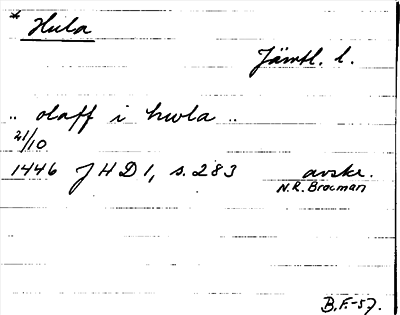 * Hula
Jämtl. l.
.. olaff i hwla ..
21/10
1446 JHD1, s. 283 avskr.
N.R. Brocman
B.F.-57.